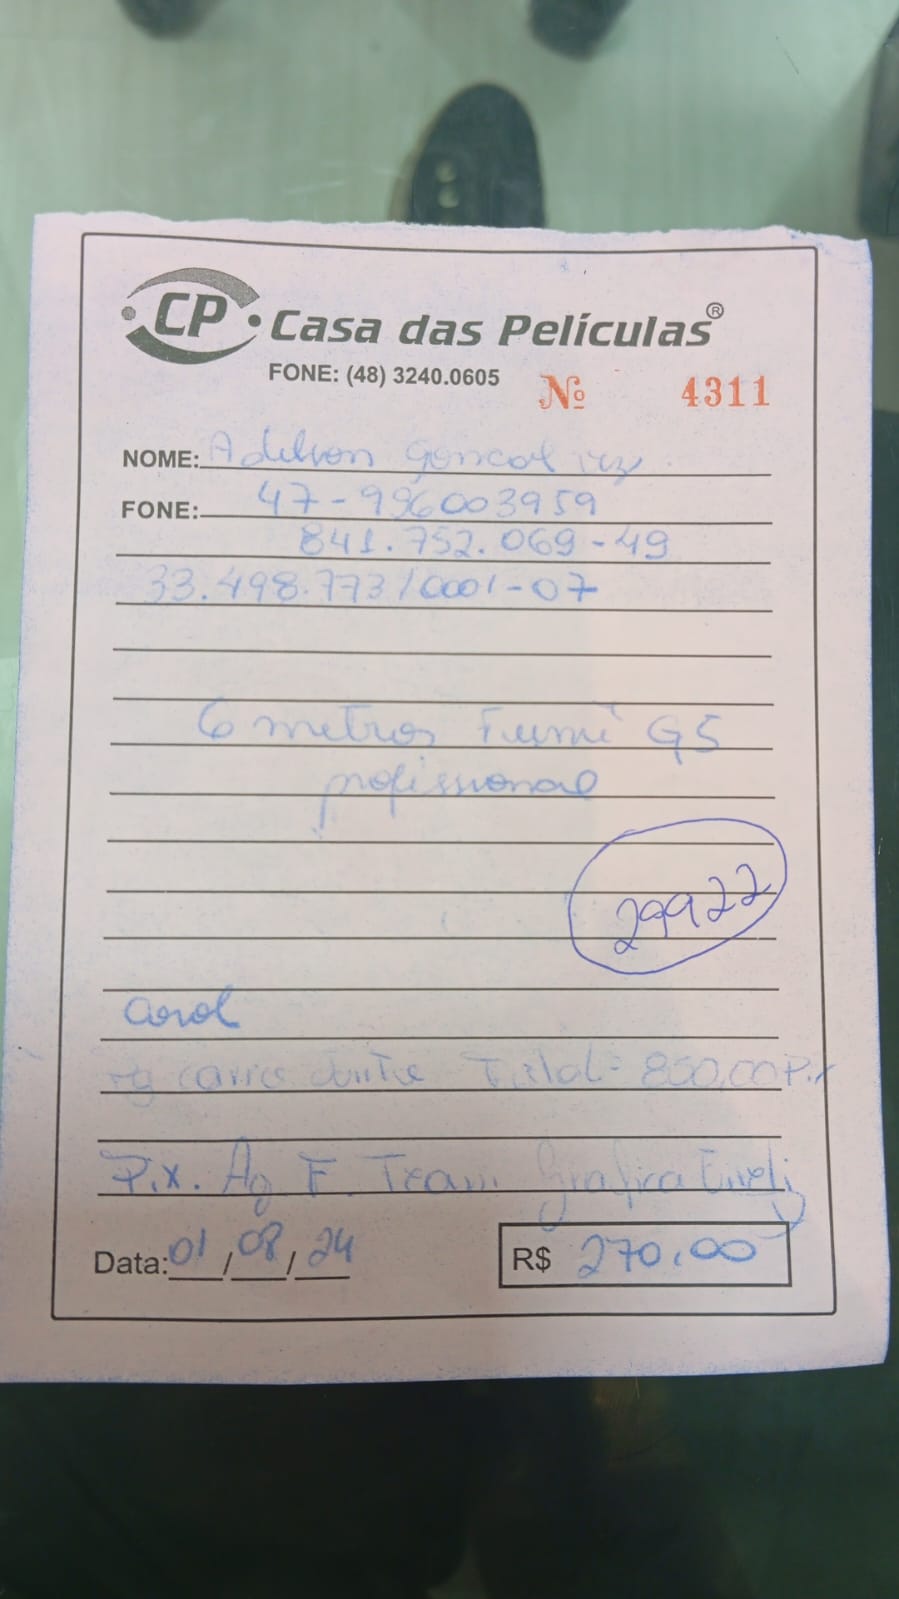 CP Casa das Películas®
FONE: (48) 3240.0605
Nº 4311
NOME: Adelson Goncalvez
FONE: 47-996003959
841.752.069-49
33.498.773/0001-07
6 metros Fumê G5
profissional
29922
Carol
Total= 850,00 Pix
Pix. Ag F. Team Grafica Eireli
Data: 01/08/24
R$ 270,00